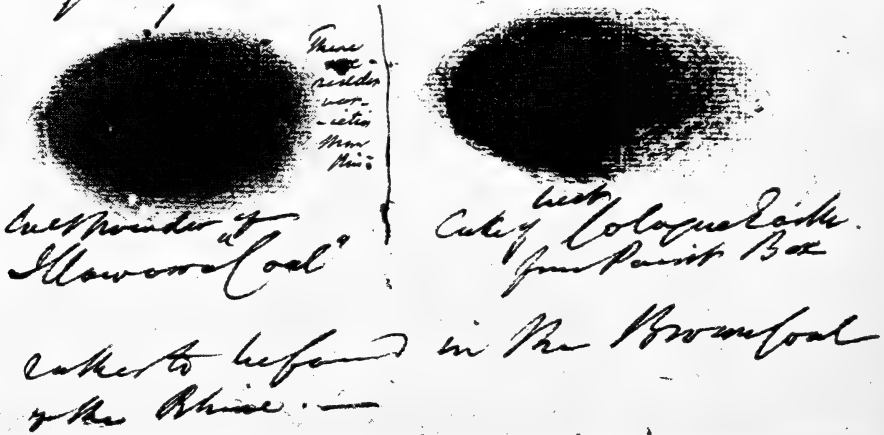 There
are
redder
var-
-ieties
than
this.
powder of
Illawarra "Coal"
Cake of best Cologne Earth.
from Paint Box
rather to be found in the Brown Coal
of the Rhine. —